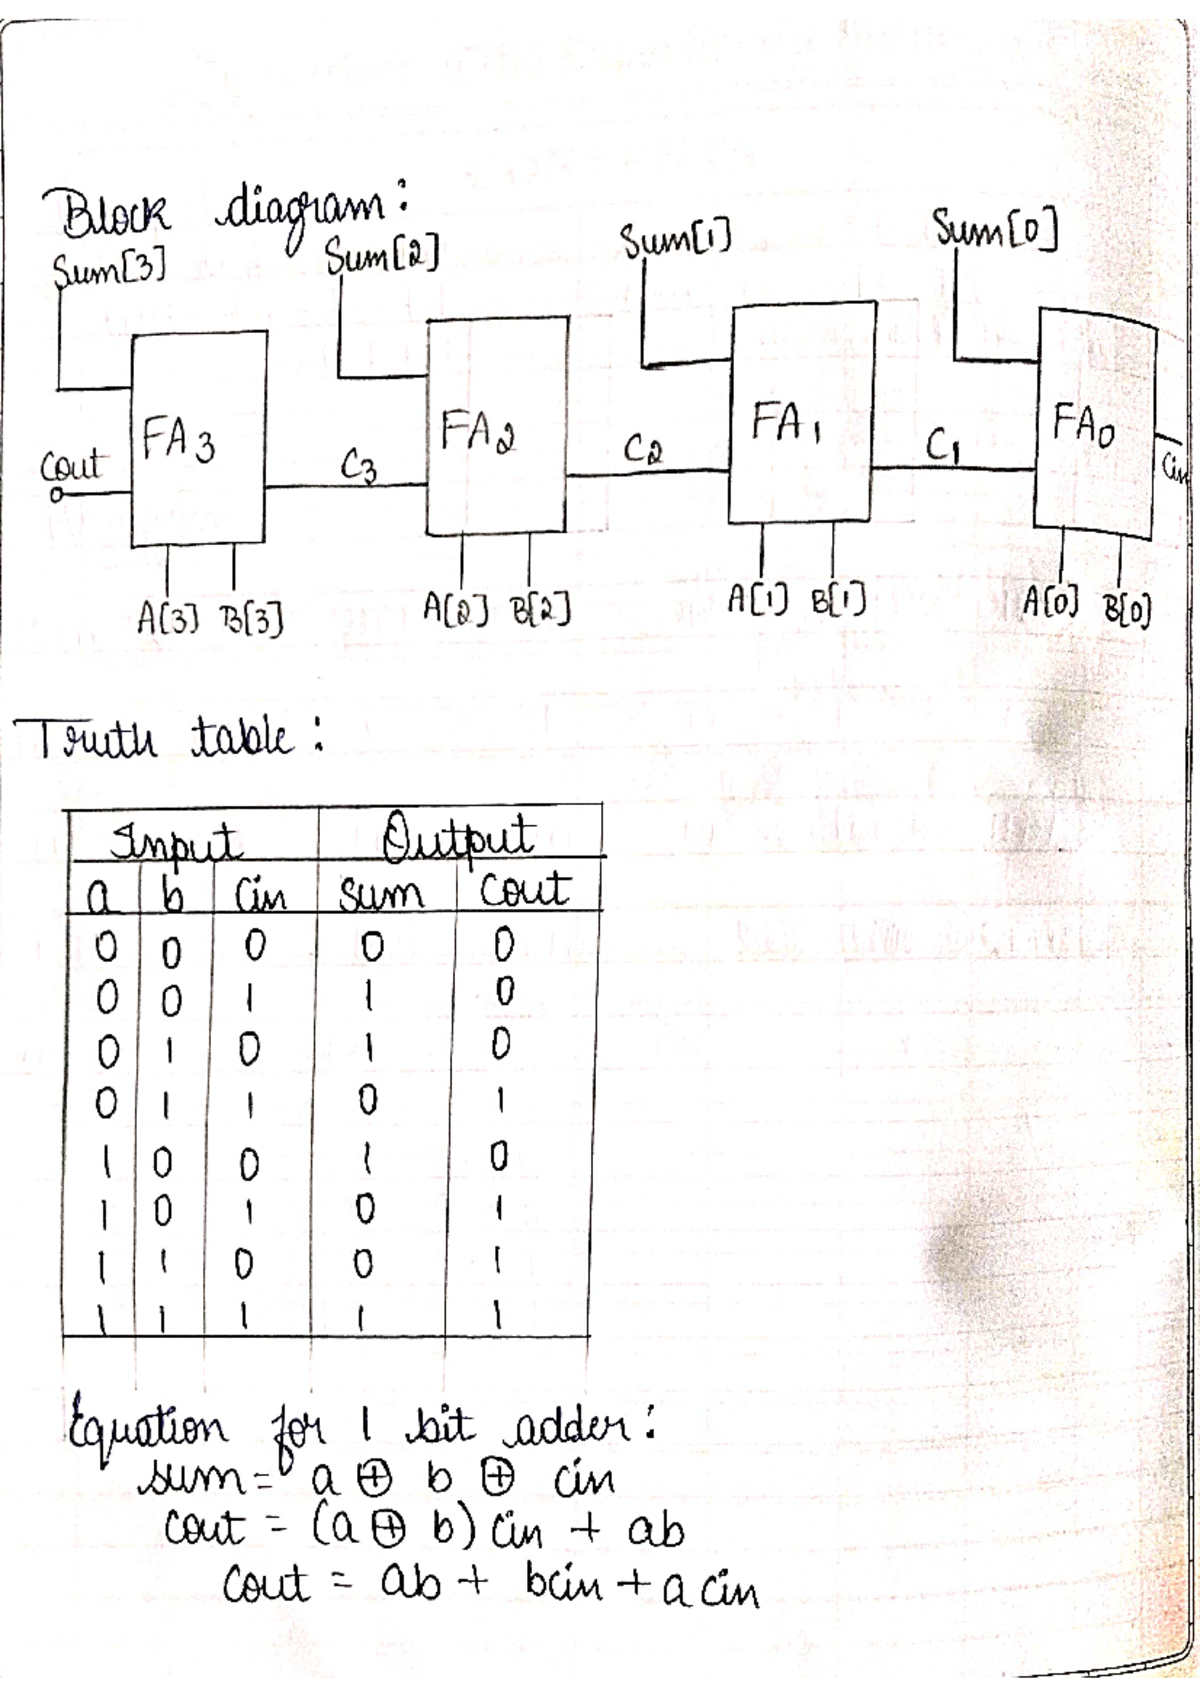 Block diagram:
Sum[3] Sum[2] Sum[1] Sum[0]
FA3 FA2 FA1 FA0
Cout C3 C2 C1 Cin
A[3] B[3] A[2] B[2] A[1] B[1] A[0] B[0]
Truth table:
Input Output
a b Cin sum cout
0 0 0 0 0
0 0 1 1 0
0 1 0 1 0
0 1 1 0 1
1 0 0 1 0
1 0 1 0 1
1 1 0 0 1
1 1 1 1 1
Equation for 1 bit adder:
sum = a ⊕ b ⊕ cin
cout = (a ⊕ b) cin + ab
cout = ab + bcin + a cin